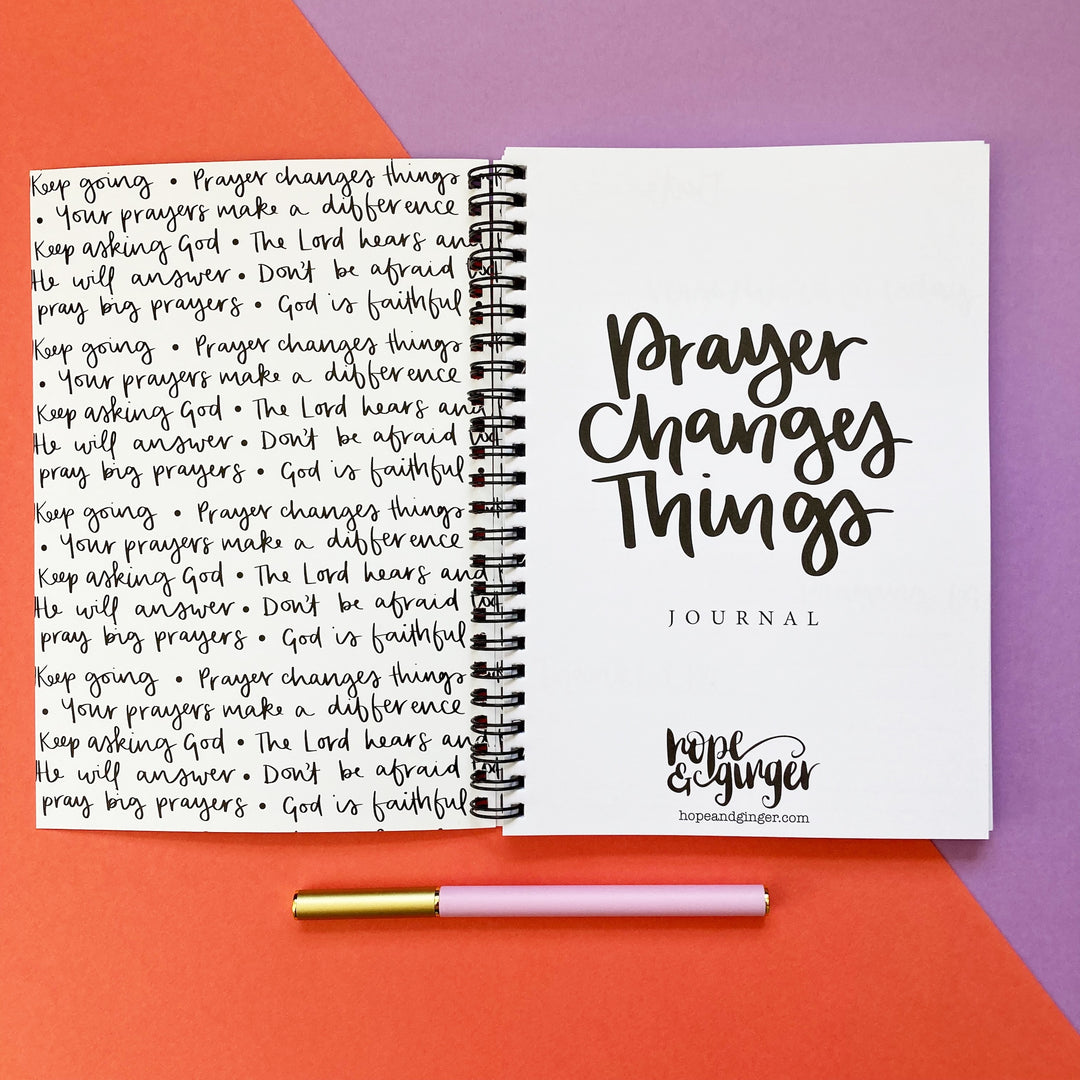 Keep going • Prayer changes things
• Your prayers make a difference
Keep asking God • The Lord hears and
He will answer • Don't be afraid
pray big prayers • God is faithful •
Keep going • Prayer changes things
• Your prayers make a difference
Keep asking God • The Lord hears and
He will answer • Don't be afraid
pray big prayers • God is faithful •
Keep going • Prayer changes things
• Your prayers make a difference
Keep asking God • The Lord hears and
He will answer • Don't be afraid
pray big prayers • God is faithful •
Keep going • Prayer changes things
• Your prayers make a difference
Keep asking God • The Lord hears and
He will answer • Don't be afraid
pray big prayers • God is faithful
Prayer
Changes
Things
JOURNAL
hope
&ginger
hopeandginger.com